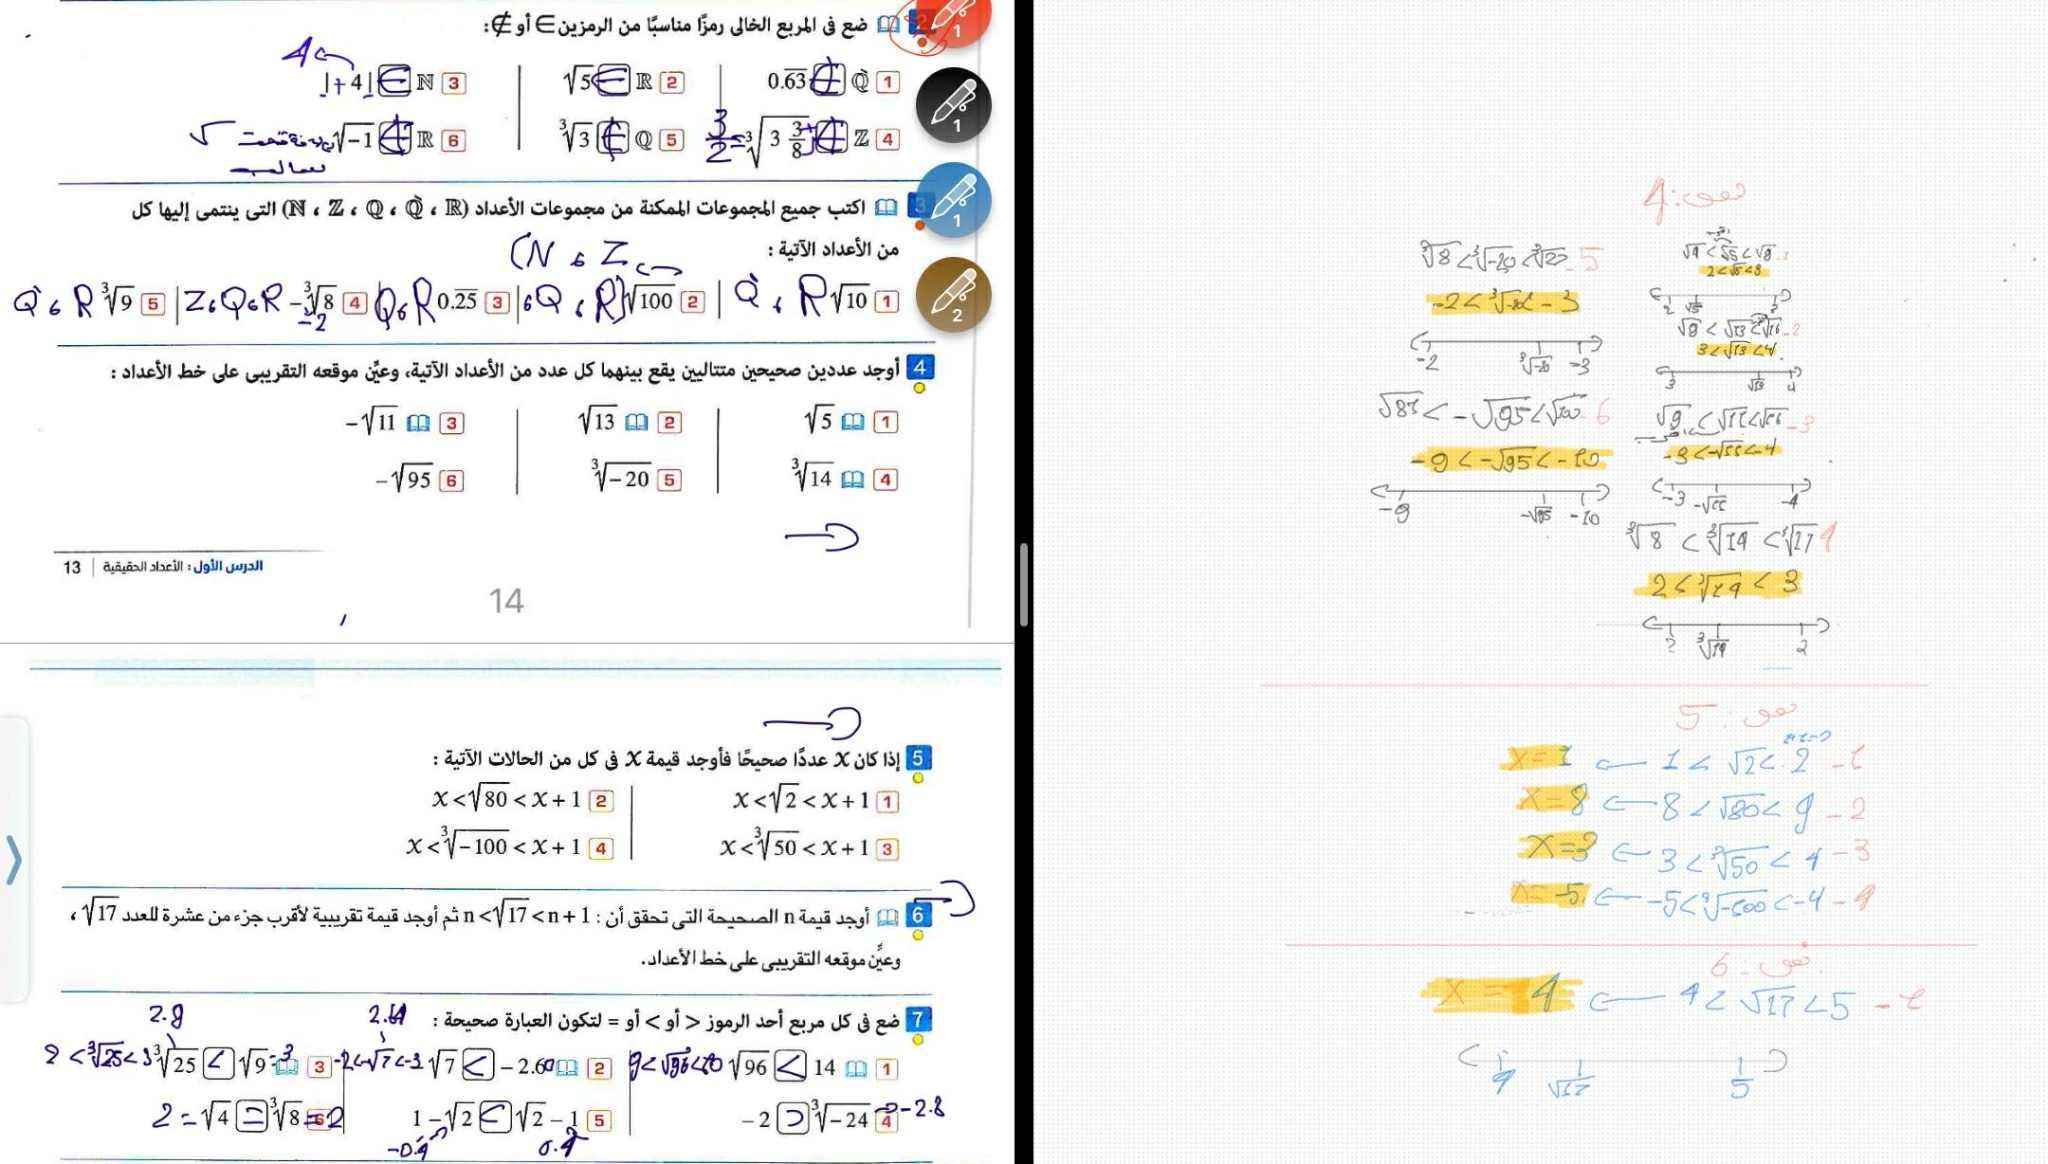 2 ضع فى المربع الخالى رمزًا مناسبًا من الرمزين ∈ أو ∉ :
1 0.63 ∉ Q̀
2 √5 ∈ ℝ
3 |+4| ∈ ℕ
4
4 3/2 = ∛(3 3/8) ∉ ℤ
5 ∛3 ∉ ℚ
6 √-1 ∉ ℝ
3 اكتب جميع المجموعات الممكنة من مجموعات الأعداد (ℕ ، ℤ ، ℚ ، Q̀ ، ℝ) التى ينتمى إليها كل
من الأعداد الآتية :
(N ، Z
1 √10 Q̀ ، R
2 √100 ، Q ، R)
3 0.25 Q ، R
4 -∛8 Z ، Q ، R
-2
5 ∛9 Q̀ ، R
4 أوجد عددين صحيحين متتاليين يقع بينهما كل عدد من الأعداد الآتية، وعيِّن موقعه التقريبى على خط الأعداد :
1 √5
2 √13
3 -√11
4 ∛14
5 ∛-20
6 -√95
الدرس الأول : الأعداد الحقيقية | 13
14
5 إذا كان x عددًا صحيحًا فأوجد قيمة x فى كل من الحالات الآتية :
1 x < √2 < x + 1
2 x < √80 < x + 1
3 x < ∛50 < x + 1
4 x < ∛-100 < x + 1
6 أوجد قيمة n الصحيحة التى تحقق أن : n < √17 < n + 1 ثم أوجد قيمة تقريبية لأقرب جزء من عشرة للعدد √17 ،
وعيِّن موقعه التقريبى على خط الأعداد.
7 ضع فى كل مربع أحد الرموز > أو < أو = لتكون العبارة صحيحة :
1 9<√96<10 √96 < 14
2 -2<-√7<-3 √7 < -2.6
3 2<∛25<3 ∛25 < √9 = 3
2.9
4 -2 > ∛-24 → -2.8
5 1 - √2 < √2 - 1
-0.4
0.4
6 2 = √4 = ∛8 = 2
1
1
1
2
4 :
√4 < √5 < √9 -1
2 < √5 < 3
2 √5 3
√9 < √13 < √16 -2
3 < √13 < 4
3 √13 4
√9 < √11 < √16 -3
-3 < -√11 < -4
-3 -√11 -4
∛8 < ∛14 < ∛27 4
2 < ∛14 < 3
∛14
∛8 < ∛-20 < ∛27 -5
-2 < ∛-20 < -3
-2 ∛-20 -3
√81 < -√95 < √100 -6
-9 < -√95 < -10
-9 -√95 -10
5 :
x = 1 ← 1 < √2 < 2 -1
x = 8 ← 8 < √80 < 9 -2
x = 3 ← 3 < ∛50 < 4 -3
x = -5 ← -5 < ∛-100 < -4 -4
6 :
x = 4 ← 4 < √17 < 5 -1
4 √17 5